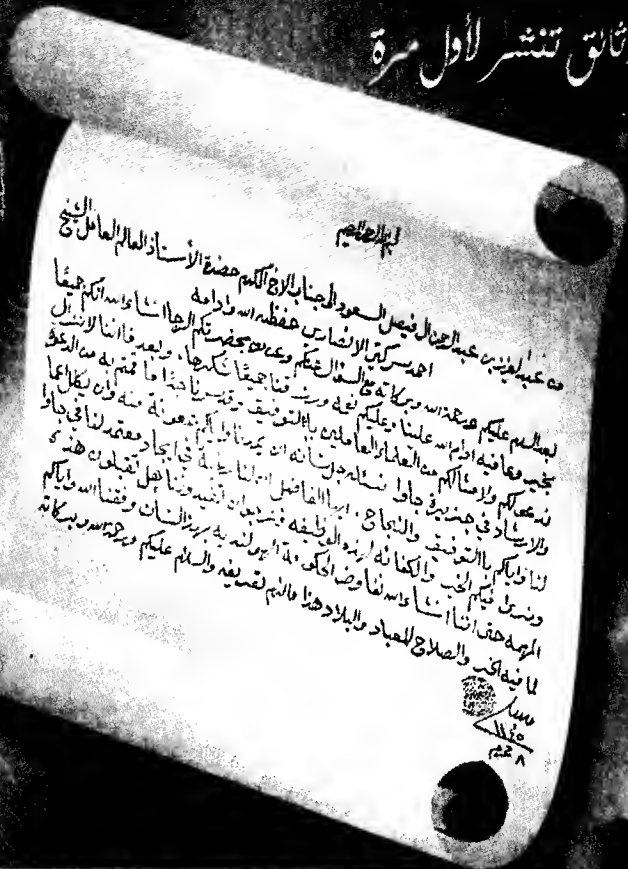 ثائق تنشر لأول مرة
بسم الله الرحمن الرحيم
من عبدالعزيز بن عبد الرحمن ال فيصل السعود الى جناب الاخ المكرم حضرة الأستاذ العالم العامل الشيخ
احمد سركتي الانصاري حفظه الله وادامه
بعد السلام عليكم ورحمة الله وبركاته مع السؤال عنكم وعن حضرتكم ارجوا انشاء الله انكم جميعًا
بخير وعافيه ادام الله علينا وعليكم نعمه ورزقنا جميعًا شكرها. وبعد فاننا لانزال
ندعو لكم ولامثالكم من العلماء العاملين باالتوفيق وقد سرنا جدًا ما قمتم به من الدعوة
والارشاد في جزيرة جاوا نسئله جل شأنه ان يمدنا واياكم بمعونة منه وان يكلل
لنا واياكم باالتوفيق والنجاح. ايها الفاضل ان لنا رغبة في ايجاد معتمد لنا في جاوا
ونرى فيكم الخير والكفائه لهذه الوظيفه فنرجوا ان تفيدوننا هل تقبلون هذه
المهمه حتى اننا انشاء الله نفاوض الحكومة الهولنديه بهذا الشان وفقنا الله واياكم
لما فيه الخير والصلاح للعباد والبلاد هذا مالزم تعريفه والسلام عليكم ورحمة الله وبركاته
٨ محرم